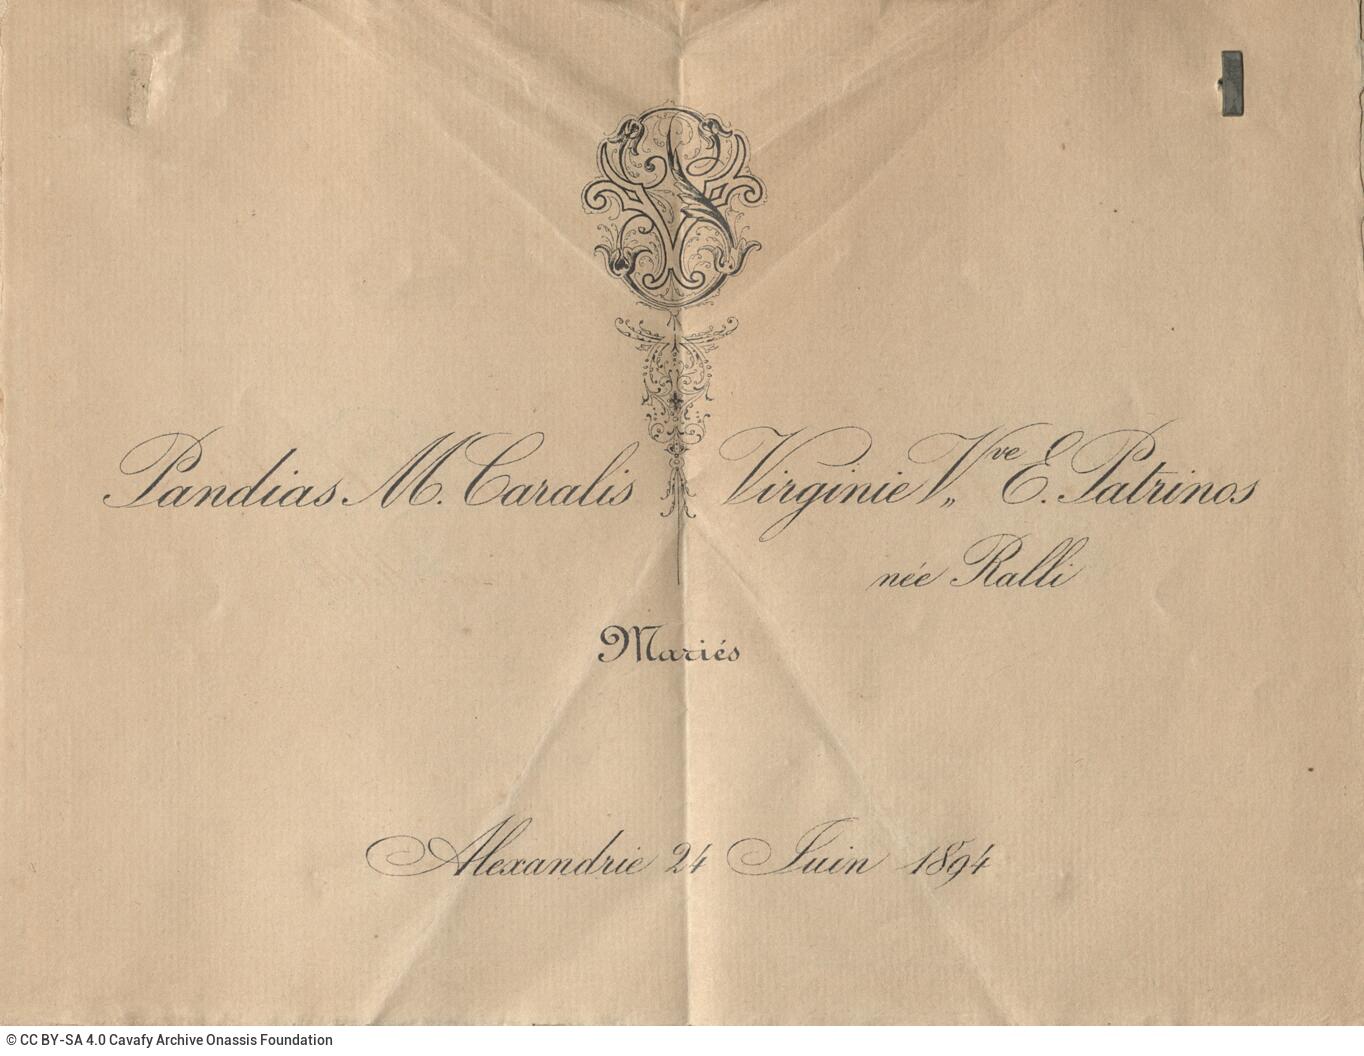 Pandias M. Caralis Virginie Vve E. Patrinos
née Ralli
Mariés
Alexandrie 24 Juin 1894
© CC BY-SA 4.0 Cavafy Archive Onassis Foundation